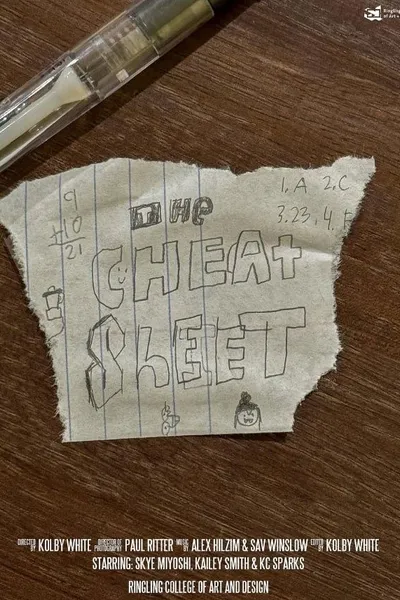 Ringling
of Art +
1, A 2. C
3. 23, 4. F
9
+10
21
THe
CHEAt
ShEET
DIRECTED BY KOLBY WHITE DIRECTOR OF PHOTOGRAPHY PAUL RITTER MUSIC BY ALEX HILZIM & SAV WINSLOW EDITED BY KOLBY WHITE
STARRING: SKYE MIYOSHI, KAILEY SMITH & KC SPARKS
RINGLING COLLEGE OF ART AND DESIGN